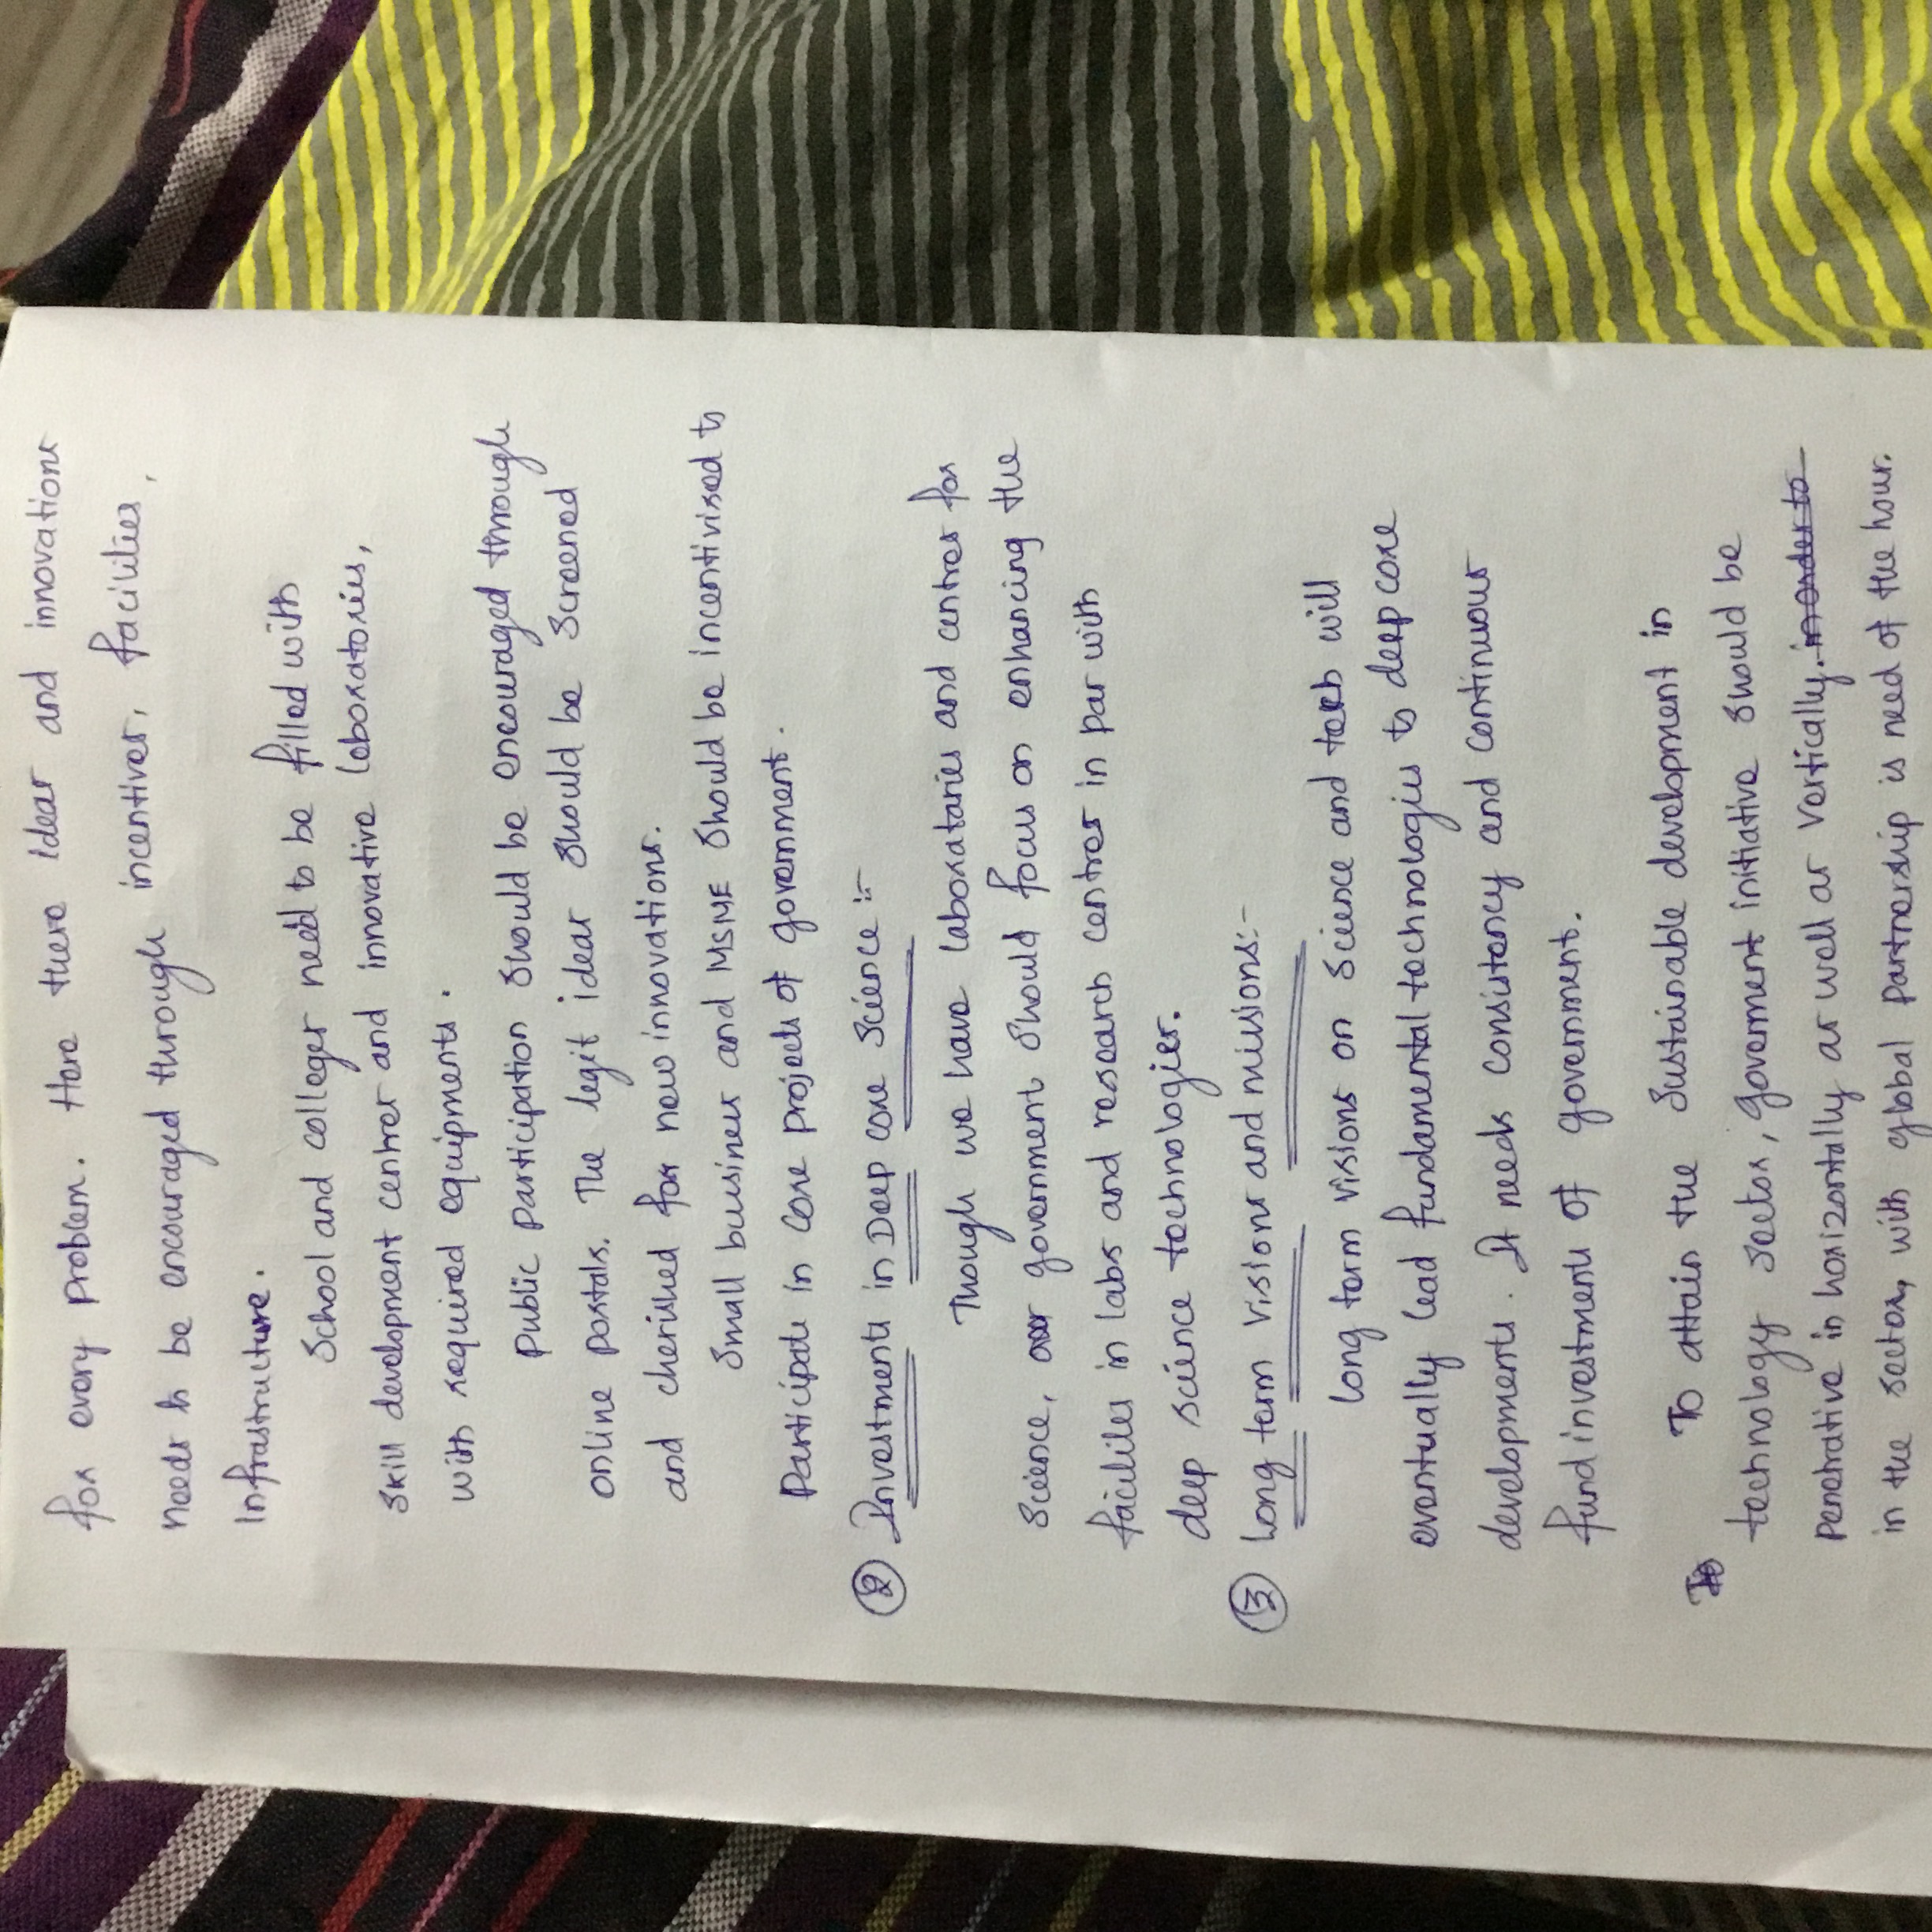 for every problem. Here there idear and innovations
needs to be encouraged through incentives, facilities,
Infrastructure.
School and colleges need to be filled with
skill development centres and innovative laboratories,
with required equipments.
Public participation should be encouraged through
online portals. The legit ideas should be screened
and cherished for new innovations.
Small business and MSME should be incentivised to
participate in core projects of government.
② Investments in Deep core Science :-
Though we have laborataries and centres for
Science, our government should focus on enhancing the
facilities in labs and research centres in par with
deep science technologies.
③ Long term visions and missions:-
Long term visions on science and tech will
eventually lead fundamental technologies to deep core
developments. It needs consistency and continuous
fund investments of government.
To attain the sustainable development in
technology sector, government initiative should be
penetrative in horizontally as well as vertically. inorder to
in the sector, with global partnership is need of the hour.